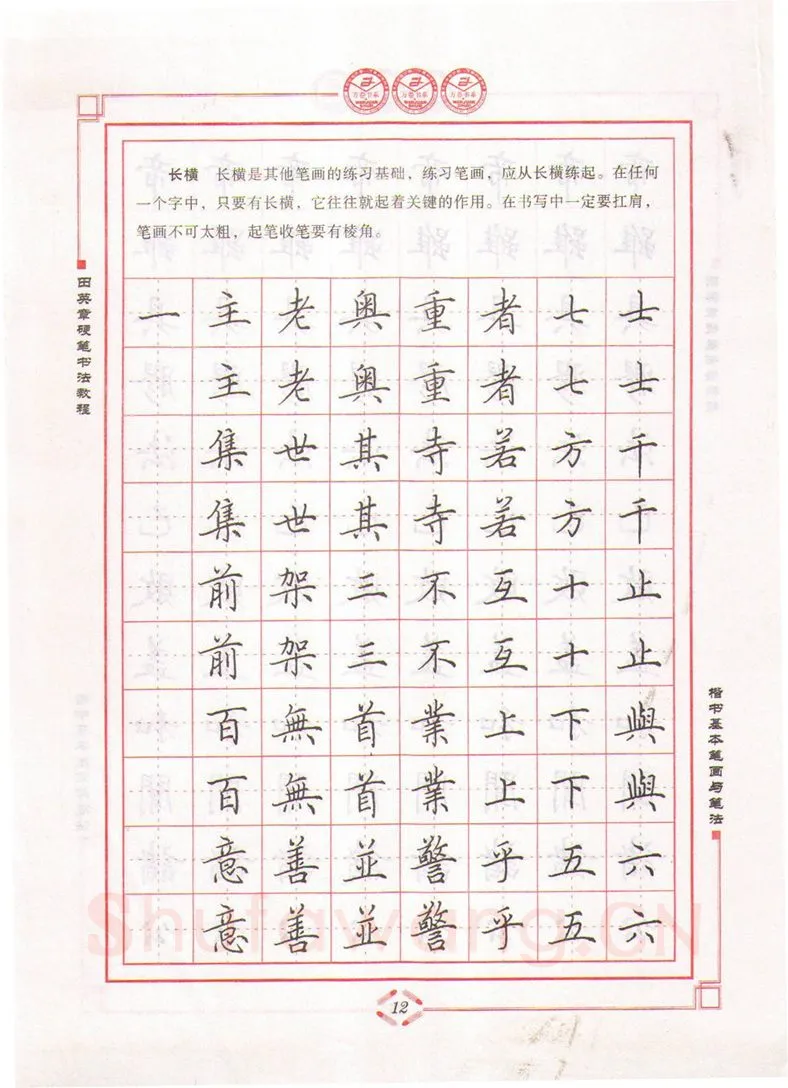 长横 长横是其他笔画的练习基础，练习笔画，应从长横练起。在任何
一个字中，只要有长横，它往往就起着关键的作用。在书写中一定要扛肩，
笔画不可太粗，起笔收笔要有棱角。
田英章硬笔书法教程
一 主 老 奥 重 者 七 士
主 老 奥 重 者 七 士
集 世 其 寺 若 方 千
集 世 其 寺 若 方 千
前 架 三 不 互 十 止
前 架 三 不 互 十 止
百 無 首 業 上 下 與
百 無 首 業 上 下 與
意 善 並 警 乎 五 六
意 善 並 警 乎 五 六
楷书基本笔画与笔法
Shufawang.CN
12